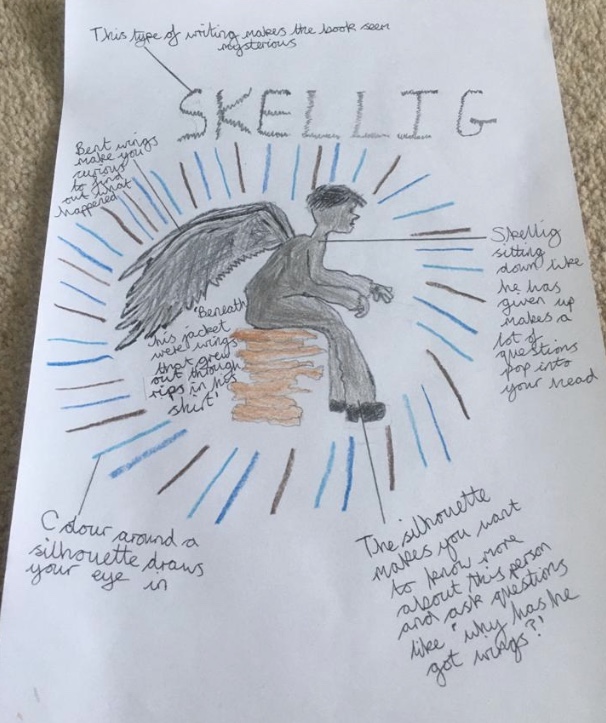 This type of writing makes the book seem
mysterious
SKELLIG
Bent wings
make you
curious
to find
out what
happened
Skellig
sitting
down like
he has
given up
makes a
lot of
questions
pop into
your head
'Beneath
his jacket
were wings
that grew
out through
rips in his
shirt'
Colour around a
silhouette draws
your eye in
The silhouette
makes you want
to know more
about this person
and ask questions
like 'why has he
got wings?'